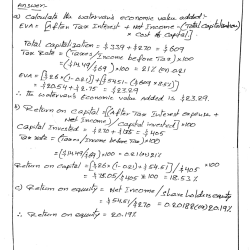 Answer:-
a) Calculate the watervan's economic value added:-
EVA = [After Tax Interest + Net Income - (Total capitalization
× cost of capital)]
Total capitalization = $339 + $270 = $609
Tax Rate = (Taxes / Income before Tax) × 100
= ($14.49 / $69) × 100 = 21% (or) 0.21
= $20.54 + $2.75 = $23.29
∴ The watervan's Economic value added is $23.29.
b) Return on capital = [(After Tax Interest expense +
Net Income) / Capital invested] × 100
Capital Invested = $270 + $135 = $405
Tax Rate = (Taxes / Income before Tax) × 100
= ($14.49 / $69) × 100 = 0.21 (or) 21%
Return on capital = [($26 × (1-0.21)) + $54.51] / $405 × 100
= $75.05 / $405 × 100 = 18.53%
c) Return on equity = Net Income / Share holders equity
= $54.51 / $270 = 0.20188 (or) 20.19%
∴ Return on equity = 20.19%